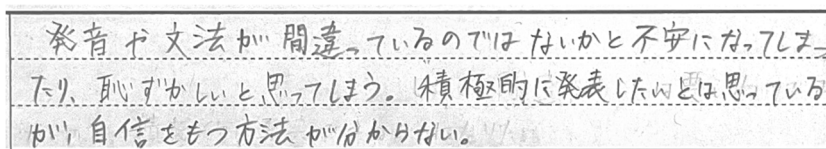 発音や文法が間違っているのではないかと不安になってしまっ
たり、恥ずかしいと思ってしまう。積極的に発表したいとは思っている
が、自信をもつ方法が分からない。